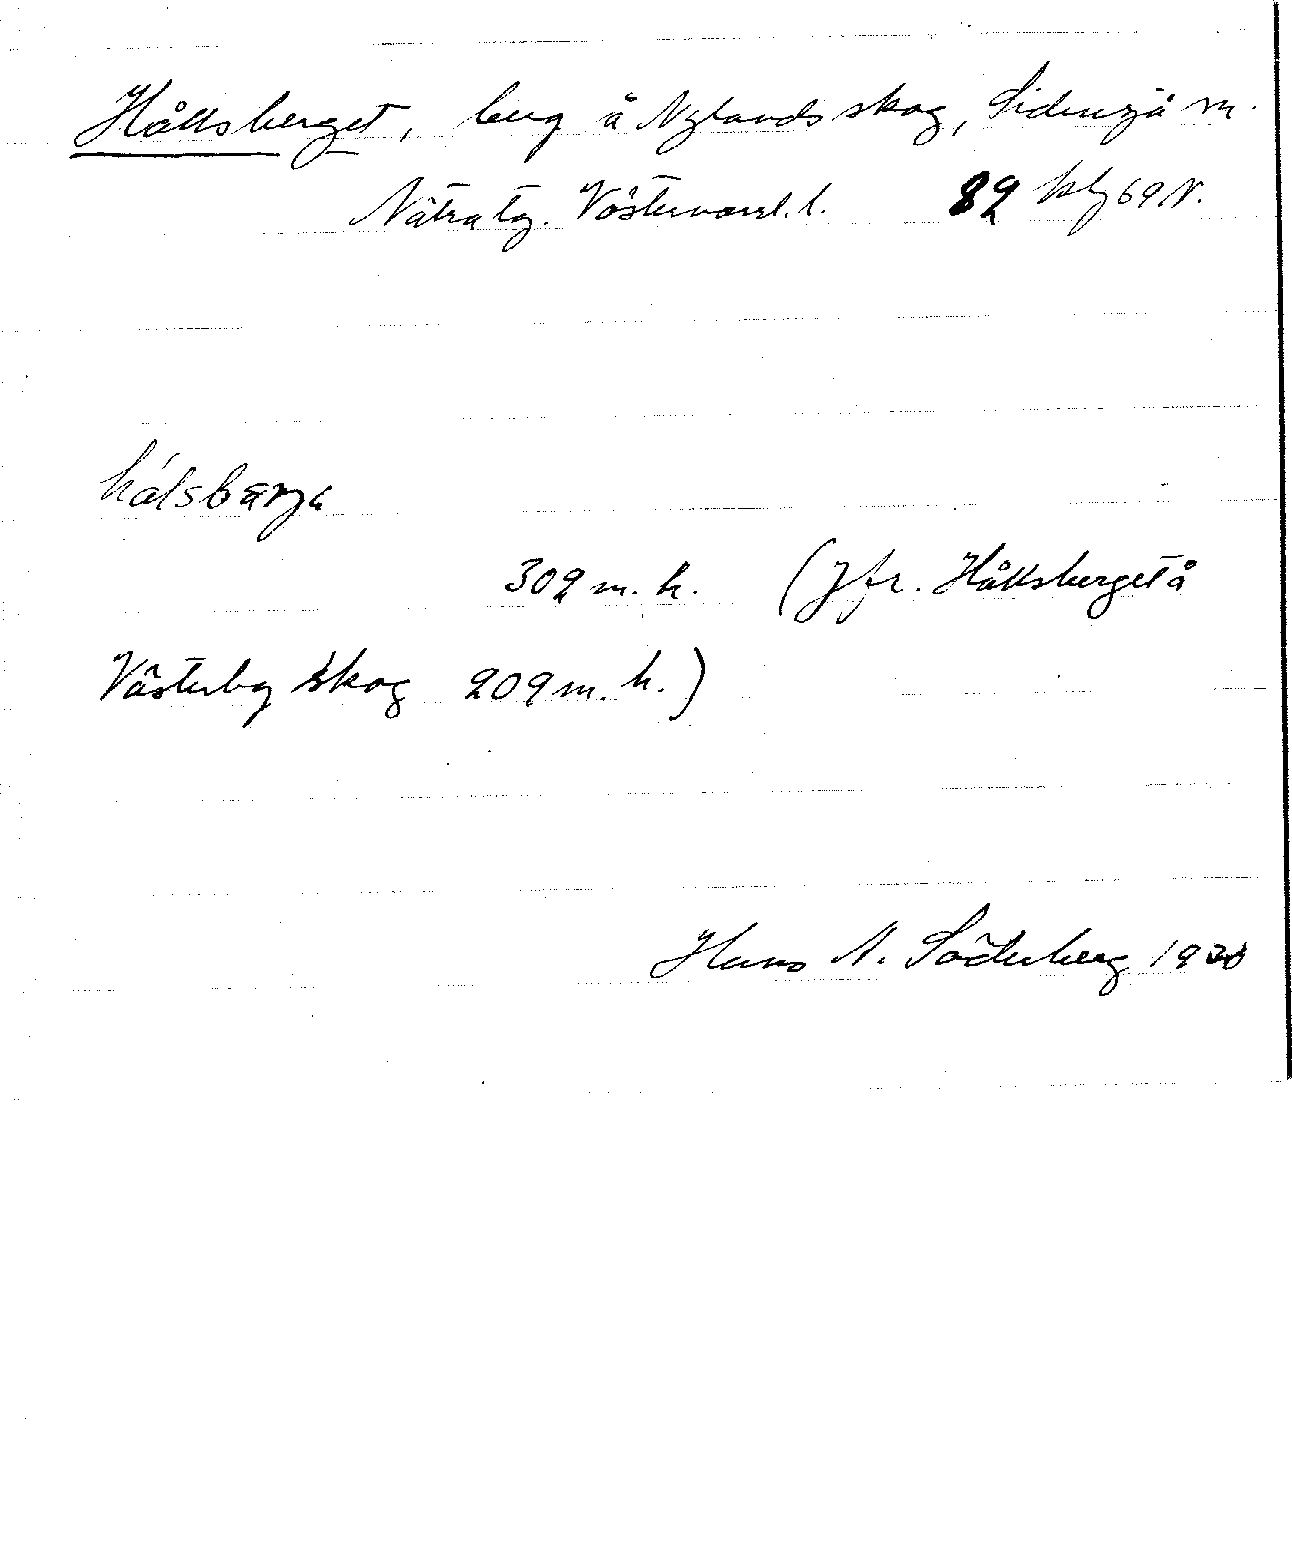 Hållsberget, berg å Nylands skog, Sidensjö sn.
Nätra tg. Västernorrl. l. 82 kbl 69 N.
hålsbärja
302 m. h. (Jfr. Hållsberget å
Västerby skog 209 m. h.)
Hans N. Söderberg 1930